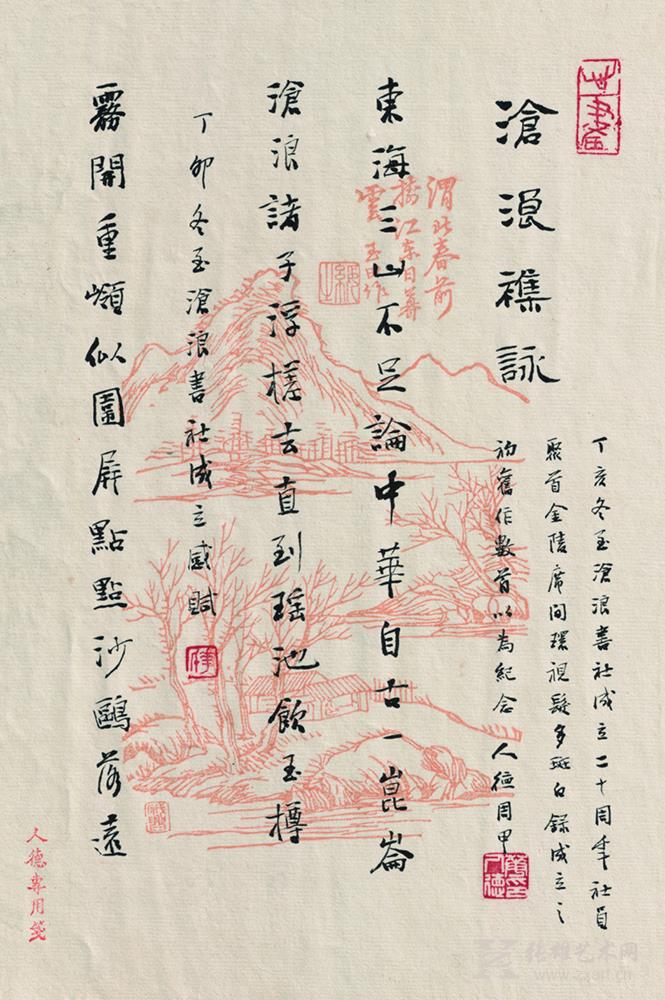 滄浪襍詠
丁亥冬至滄浪書社成立二十周年社員
聚首金陵席間環視鬢多斑白錄成立之
初舊作數首以為紀念人德周甲
東海三山不足論中華自古一崑崙
滄浪諸子浮槎去直到瑤池飲玉樽
丁卯冬至滄浪書社成立感賦
霧開重嶺似圍屏點點沙鷗落遠
渭北春前
樹江東日暮
雲
人德專用箋
www.zxart.cn